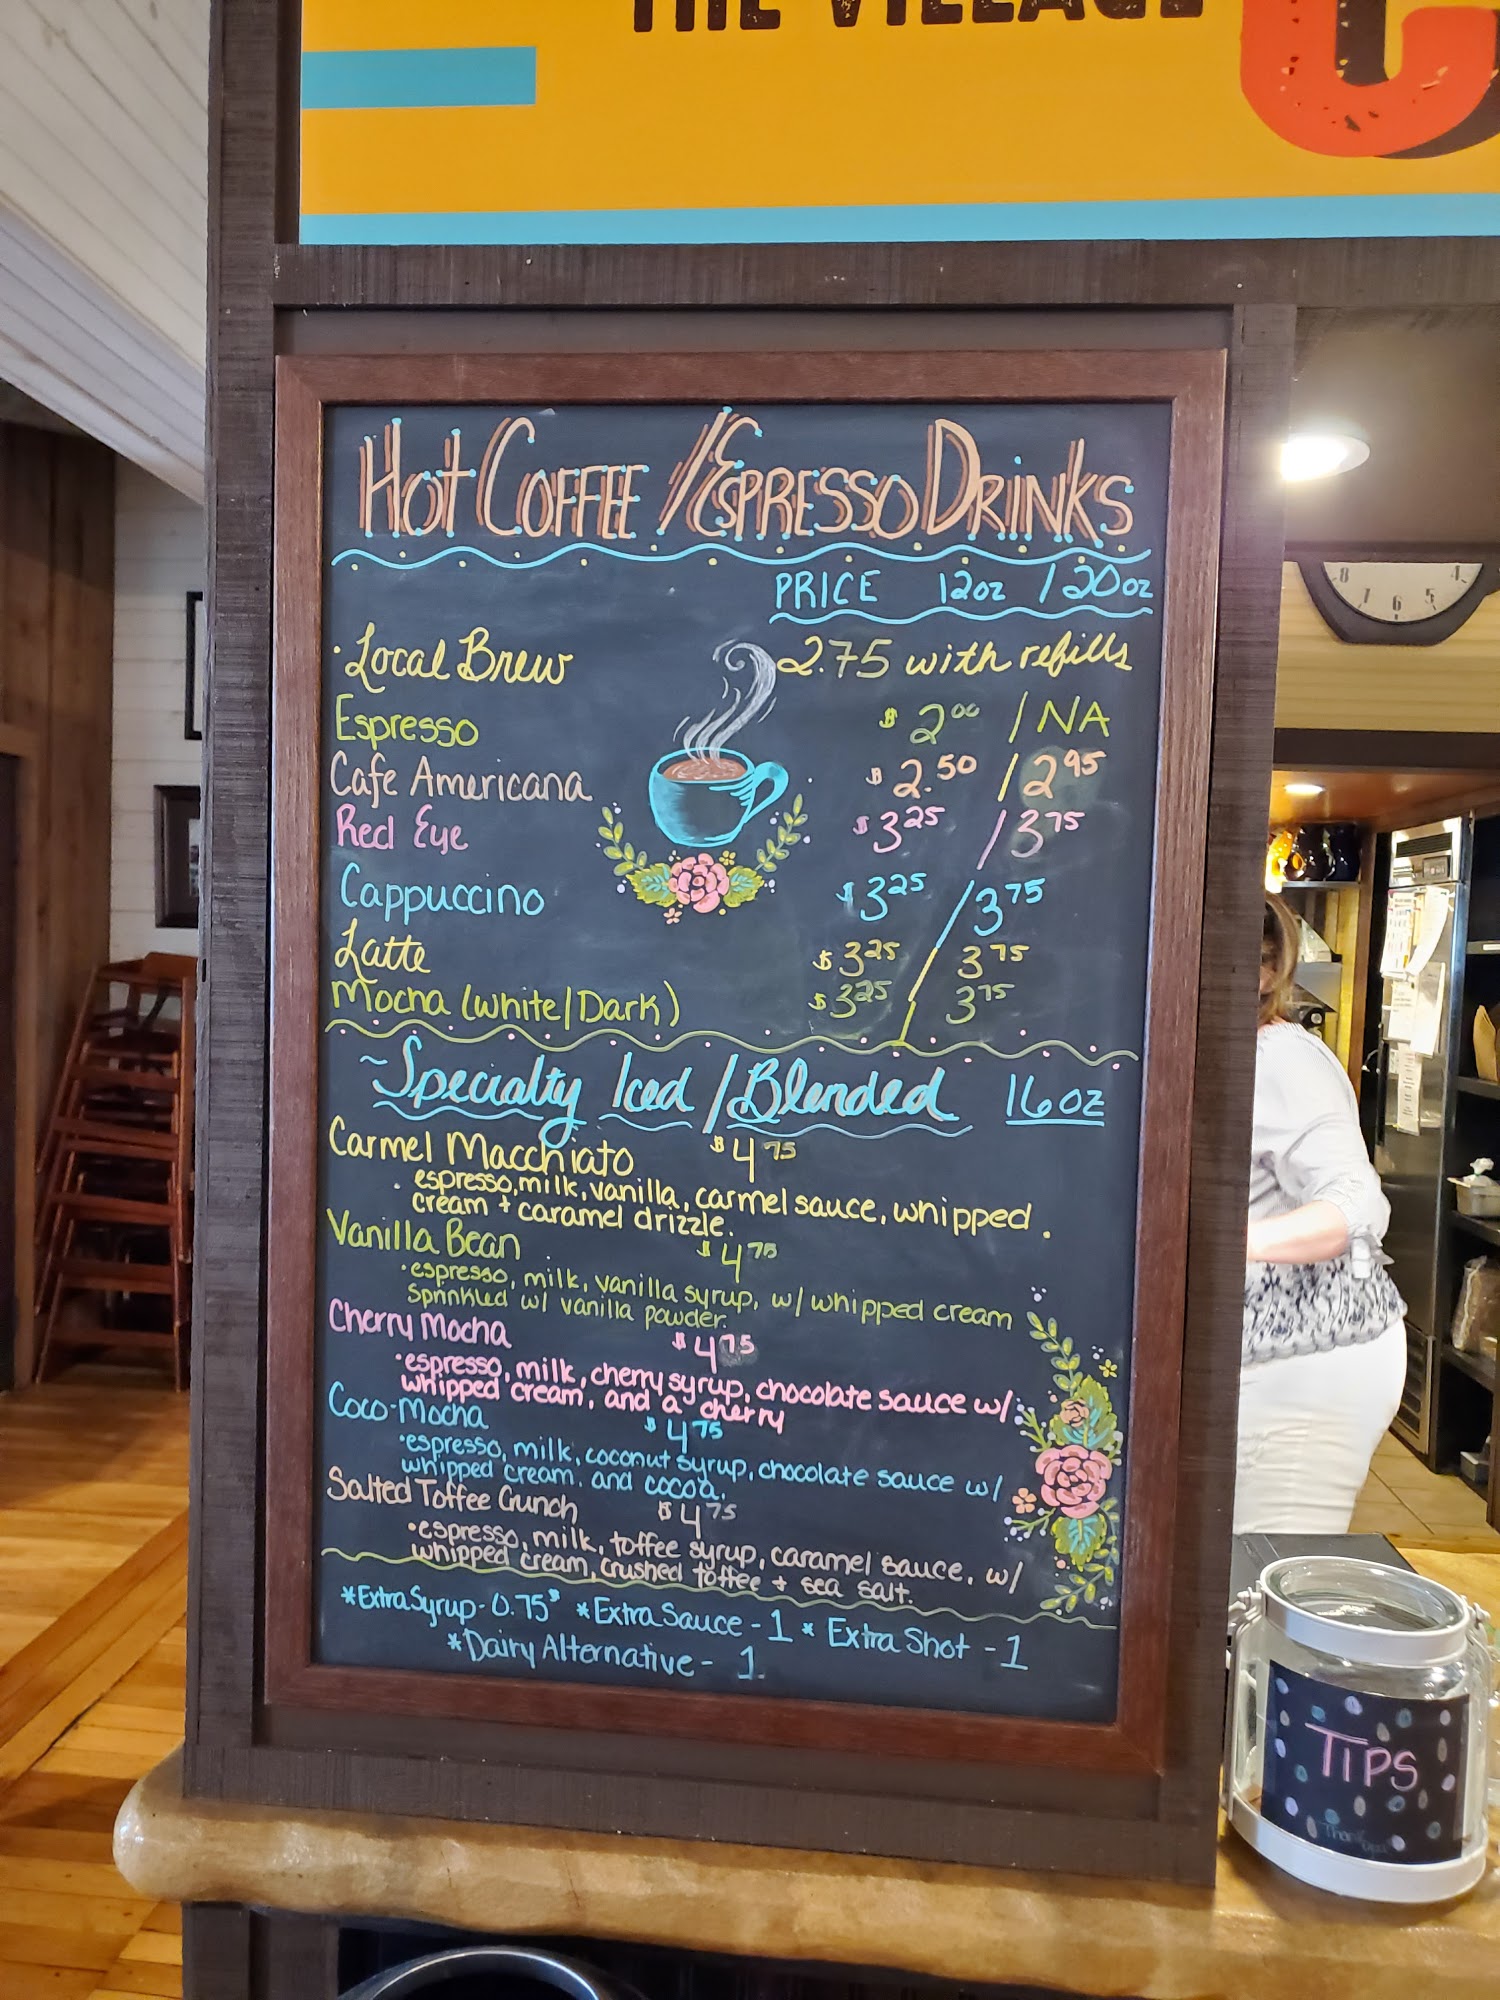 THE VILLAGE C
HOT COFFEE / ESPRESSO DRINKS
PRICE 12oz / 20oz
·Local Brew 2.75 with refills
Espresso $2.00 / NA
Cafe Americana $2.50 / 2.95
Red Eye $3.25 / 3.75
Cappuccino $3.25 / 3.75
Latte $3.25 / 3.75
Mocha (White/Dark) $3.25 / 3.75
~Specialty Iced / Blended 16oz
Carmel Macchiato $4.75
· espresso, milk, vanilla, carmel sauce, whipped
cream + caramel drizzle.
Vanilla Bean $4.75
·espresso, milk, vanilla syrup, w/ whipped cream
sprinkled w/ vanilla powder.
Cherry Mocha $4.75
·espresso, milk, cherry syrup, chocolate sauce w/
whipped cream, and a cherry
Coco-Mocha $4.75
·espresso, milk, coconut syrup, chocolate sauce w/
whipped cream. and cocoa.
Salted Toffee Crunch $4.75
·espresso, milk, toffee syrup, caramel sauce, w/
whipped cream, crushed toffee + sea salt.
*Extra Syrup - 0.75 *Extra Sauce - 1 * Extra Shot - 1
*Dairy Alternative - 1.
8 7 6 5 4
TIPS
Thank